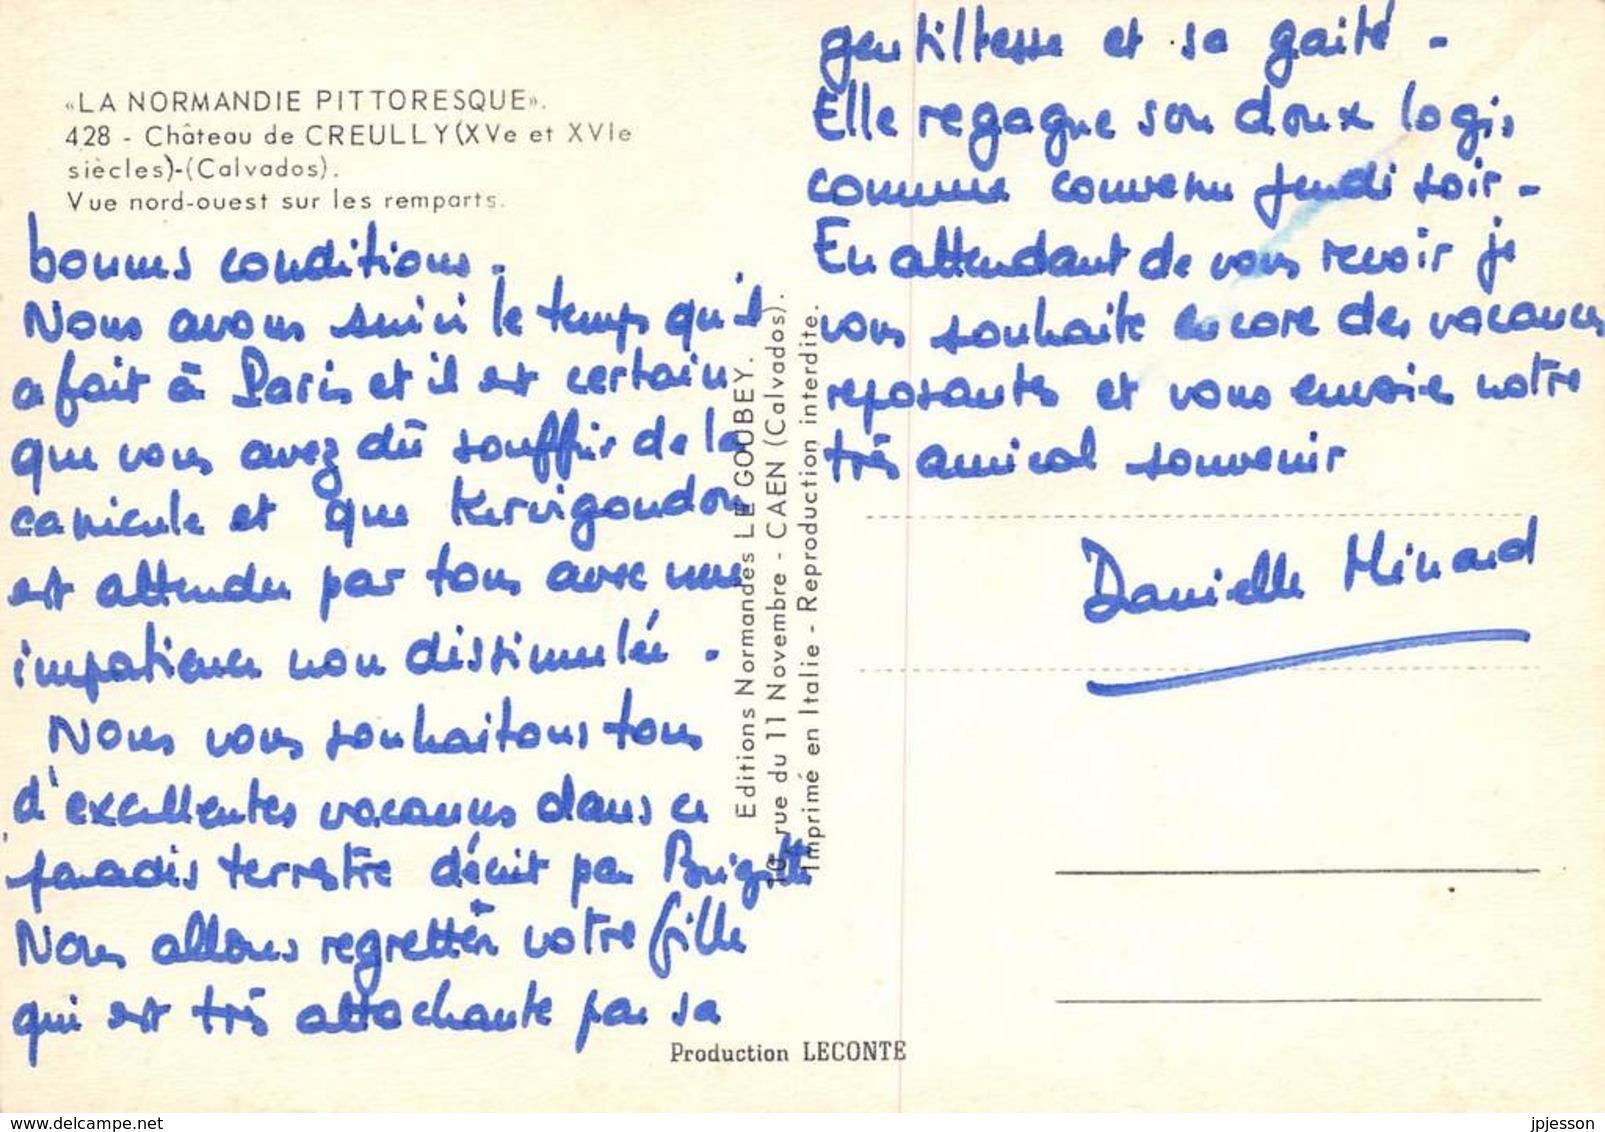 «LA NORMANDIE PITTORESQUE».
428 - Château de CREULLY (XVe et XVIe
siècles)-(Calvados).
Vue nord-ouest sur les remparts.
bonnes conditions.
Nous avons suivi le temps qu'il
a fait à Paris et il est certain
que vous avez dû souffrir de la
canicule et que Kervigoudon
est attendu par tous avec une
impatience non dissimulée.
Nous vous souhaitons tous
d'excellentes vacances dans ce
paradis terrestre décrit par Brigitte
Nous allons regretter votre fille
qui est très attachante par sa
gentillesse et sa gaité -
Elle regagne son doux logis
comme convenu jeudi soir -
En attendant de vous revoir je
vous souhaite encore des vacances
reposantes et vous envoie notre
très amical souvenir
Danielle Minard
Editions Normandes LE GOUBEY.
10, rue du 11 Novembre - CAEN (Calvados).
Imprimé en Italie - Reproduction interdite.
Production LECONTE
www.delcampe.net
jpjesson